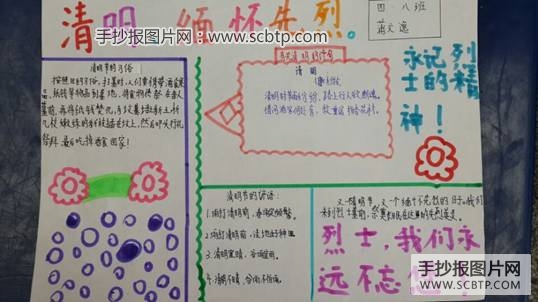 清明 缅怀先烈。
手抄报图片网
WWW.SCBTP.COM
四·八班
清明节的习俗
按照旧的习俗,扫墓时,人们要携带酒食果
品,纸钱等物品到墓地,将食物供祭在亲人
墓前,再将纸钱焚化,为坟墓培上新土,折
几枝嫩绿的新枝插在坟上,然后叩头行礼
祭拜,最后吃掉酒食回家!
清 明
清明时节雨纷纷,路上行人欲断魂。
借问酒家何处有,牧童遥指杏花村。
永记烈
士的精
神!
清明节的谚语:
1.雨打清明前,春雨定频繁。
2.雨打清明前,洼地好种田
3.清明宜晴,谷雨宜雨。
4.清明不晴,谷雨不雨。
烈士,我们永
远不忘
手抄报图片网
WWW.SCBTP.COM